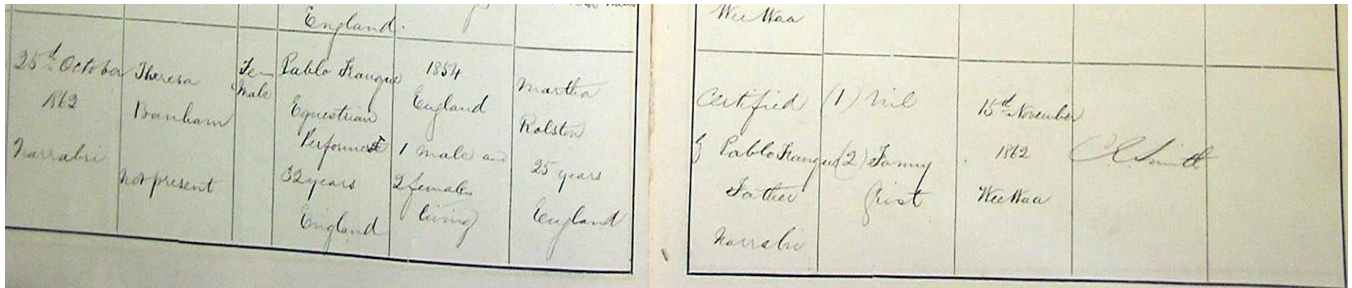 England.
Wee Waa
25th October
1862
Narrabri
Theresa
Banham
not present
Fe-
male
Pablo Franque
Equestrian
Performer
32 years
England
1854
England
1 male and
2 females
living
Martha
Rolston
25 years
England
Certified
Pablo Franque
Father
Narrabri
(1) Nil
(2) Fanny
Grist
15th November
1862
Wee Waa
Smith